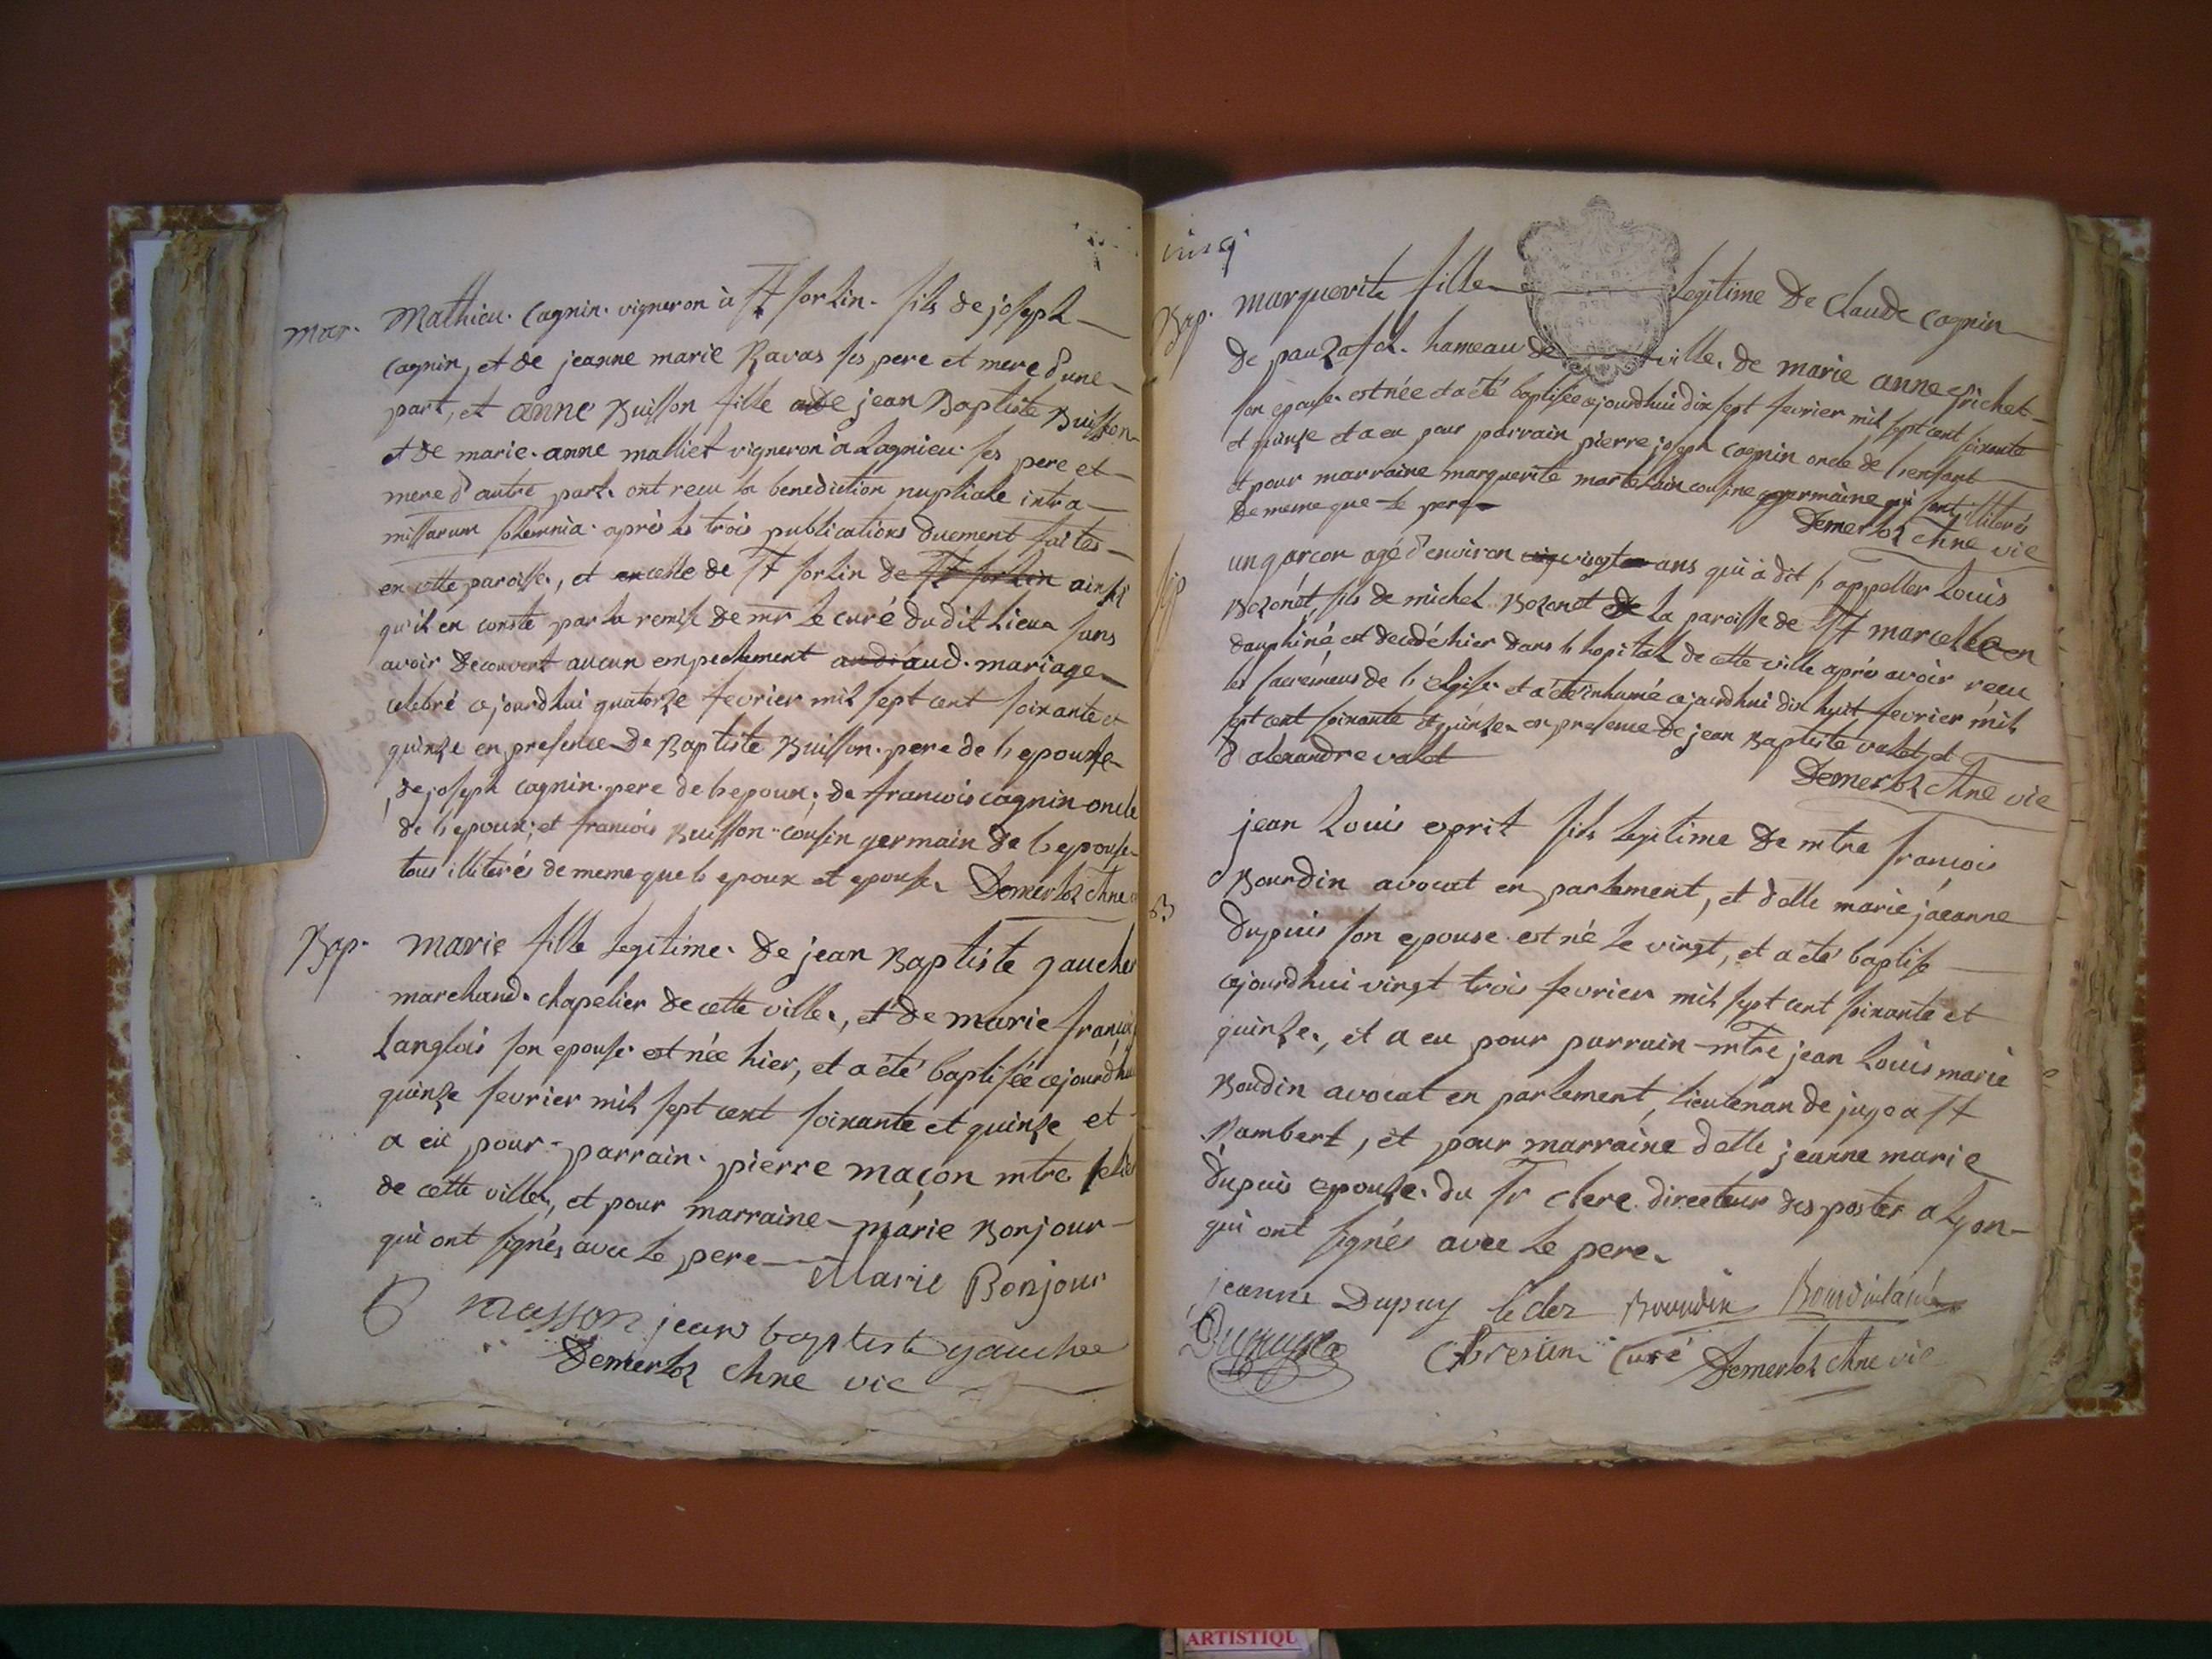 mar. Mathieu Cagnin vigneron à St sorlin fils de joseph
Cagnin, et de jeanne marie Ravas ses pere et mere d'une
part, et anne Buisson fille de jean Baptiste Buisson
et de marie anne malliet vigneron à Lagnieu ses pere et
mere d'autre part. ont recu la benediction nuptiale intra
missarum solemnia après les trois publications duement faites
en cette paroisse, et en celle de St sorlin de St sorlin ainsi
qu'il en conste par la remise de mr le curé du dit lieu sans
avoir decouvert aucun empechement audi aud. mariage
celebré cejourdhui quatorze fevrier mil sept cent soixante et
quinze en presence de Baptiste Buisson pere de l'epouse
de joseph cagnin pere de l'epoux; de francois cagnin oncle
de l'epoux; et francois Buisson cousin germain de l'epouse
tous illiterés de meme que l'epoux et epouse. Demerloz chne
Bap. marie fille legitime de jean Baptiste gaucher
marchand chapelier de cette ville, et de marie françois
Langlois son epouse est née hier, et a été baptisée cejourdhui
quinze fevrier mil sept cent soixante et quinze et
a eu pour parrain pierre maçon mtre selier
de cette ville, et pour marraine marie Bonjour
qui ont signés avec le pere
Marie Bonjour
masson jean baptiste gauchee
Demerloz chne vic
cinq
Bap. marguerite fille legitime de Claude Cagnin
de hameau de ville. de marie anne frichet
son epouse est née et a été baptisée cejourdhui dix sept fevrier mil sept cent soixante
et quinze et a eu pour parrain pierre joseph Cagnin oncle de l'enfant
et pour marraine marguerite martelain cousine germaine qui sont illiterés
de meme que le pere
Demerloz chne vic
un garcon agé d'environ vingt ans qui a dit s'appeller Louis
Bozonet, fils de michel Bozonet de la paroisse de St marcel en
dauphiné est decedé hier dans l'hopital de cette ville après avoir recu
les sacremens de l'eglise et a été inhumé cejourdhui dix huit fevrier mil
sept cent soixante et quinze en presence de jean Baptiste valet et
d'alexandre valet
Demerloz chne vic
B jean Louis esprit fils legitime de mtre francois
Bourdin avocat en parlement, et delle marie jaeanne
dupuis son epouse est né le vingt, et a été baptisé
cejourdhui vingt trois fevrier mil sept cent soixante et
quinze, et a eu pour parrain mtre jean Louis marie
Boudin avocat en parlement, lieutenan de juge a St
Rambert, et pour marraine delle jeanne marie
dupuis epouse du sr clerc directeur des postes a Lyon
qui ont signés avec le pere.
jeanne Dupuy Bourdin
curé Demerloz chne vic
ARTISTIQU